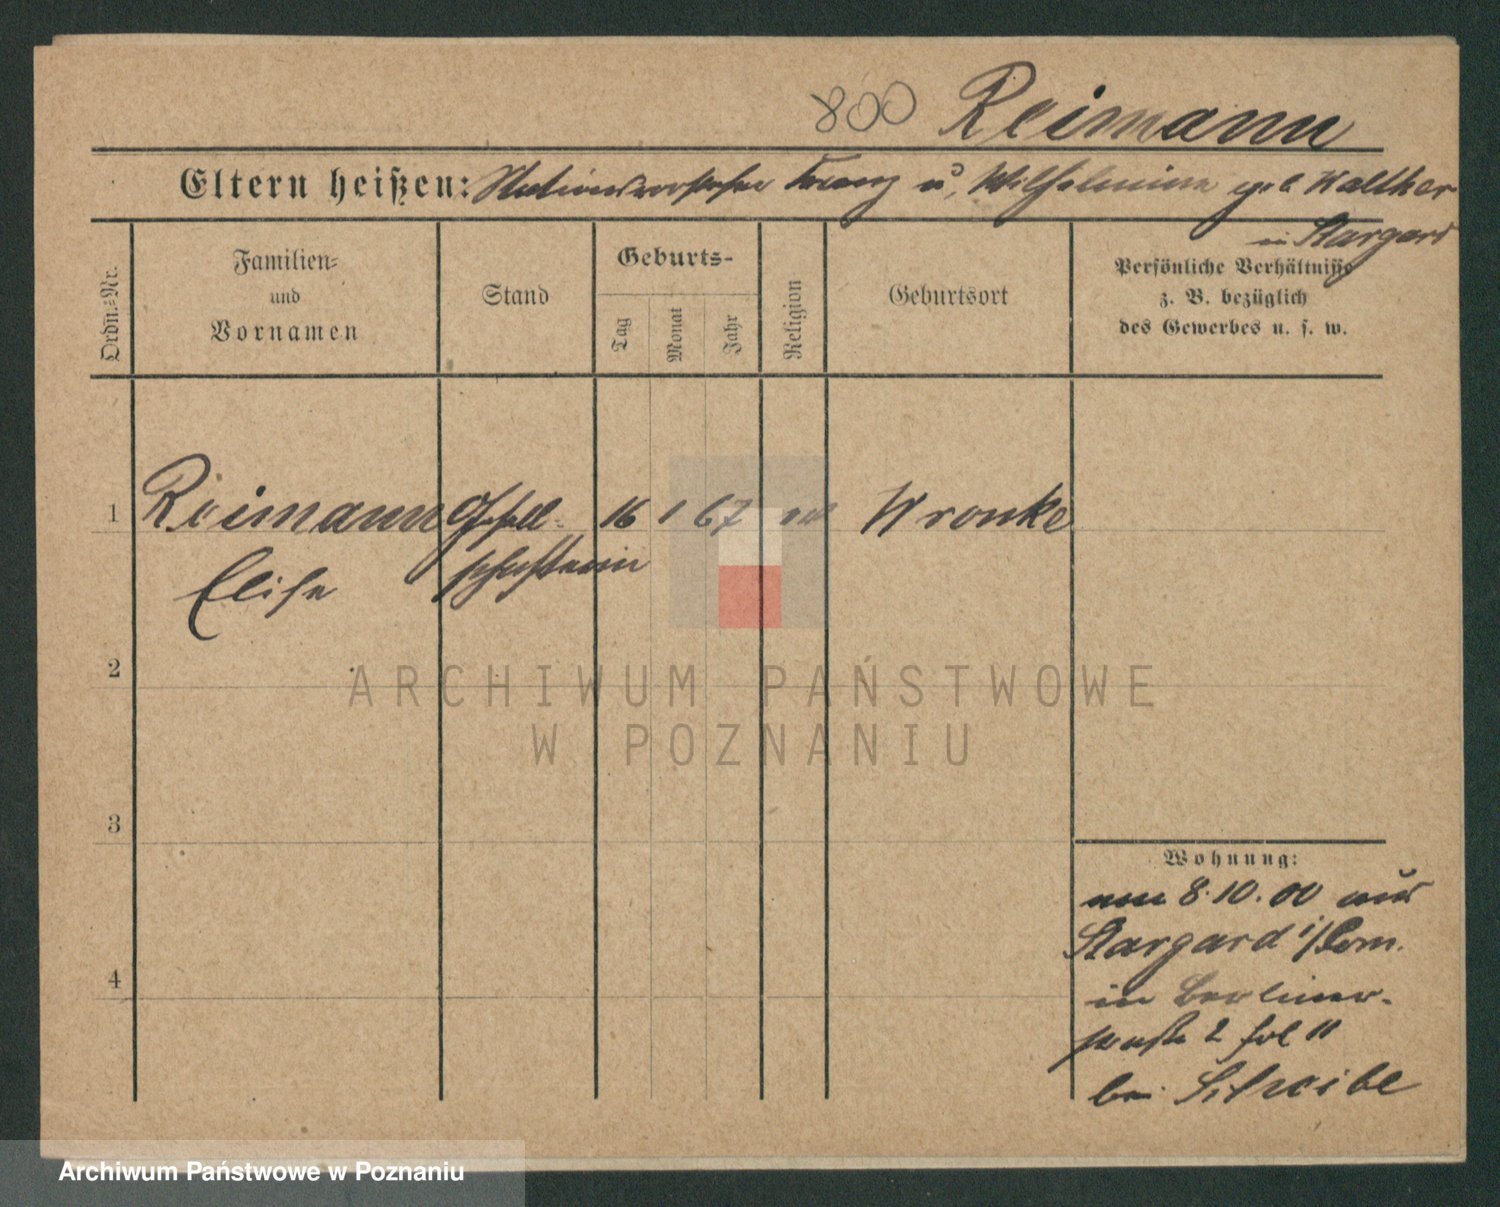 800 Reimann
Eltern heißen: Stationsvorsteher Franz u. Wilhelmine geb Walther
in Stargard
Ordn.-Nr.
Familien-
und
Vornamen
Stand
Geburts-
Tag
Monat
Jahr
Religion
Geburtsort
Persönliche Verhältnisse
z. B. bezüglich
des Gewerbes u. s. w.
1 Reimann Gesell- 16 1 67 ev Wronke
Elise schafterin
2
3
4
Wohnung:
am 8.10.00 aus
Stargard i/Pom.
in Berliner-
straße 2 fol 11
bei Scheibe
ARCHIWUM PAŃSTWOWE
W POZNANIU
Archiwum Państwowe w Poznaniu